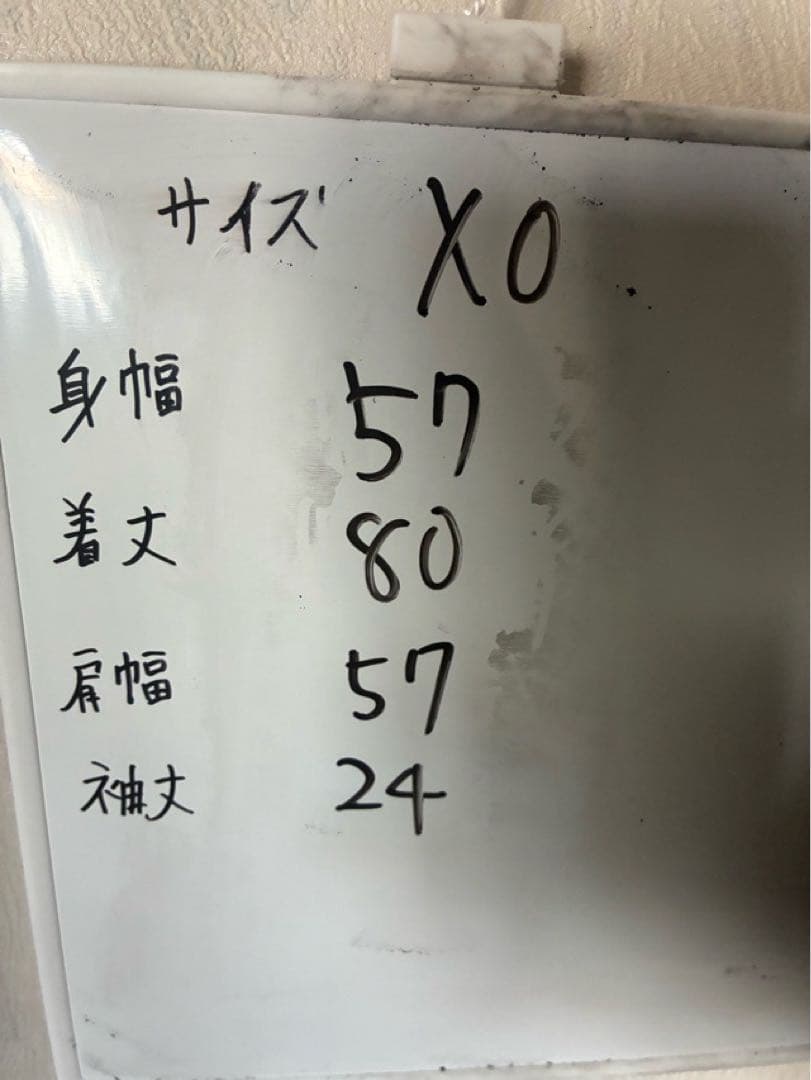 サイズ XO
身幅 57
着丈 80
肩幅 57
袖丈 24